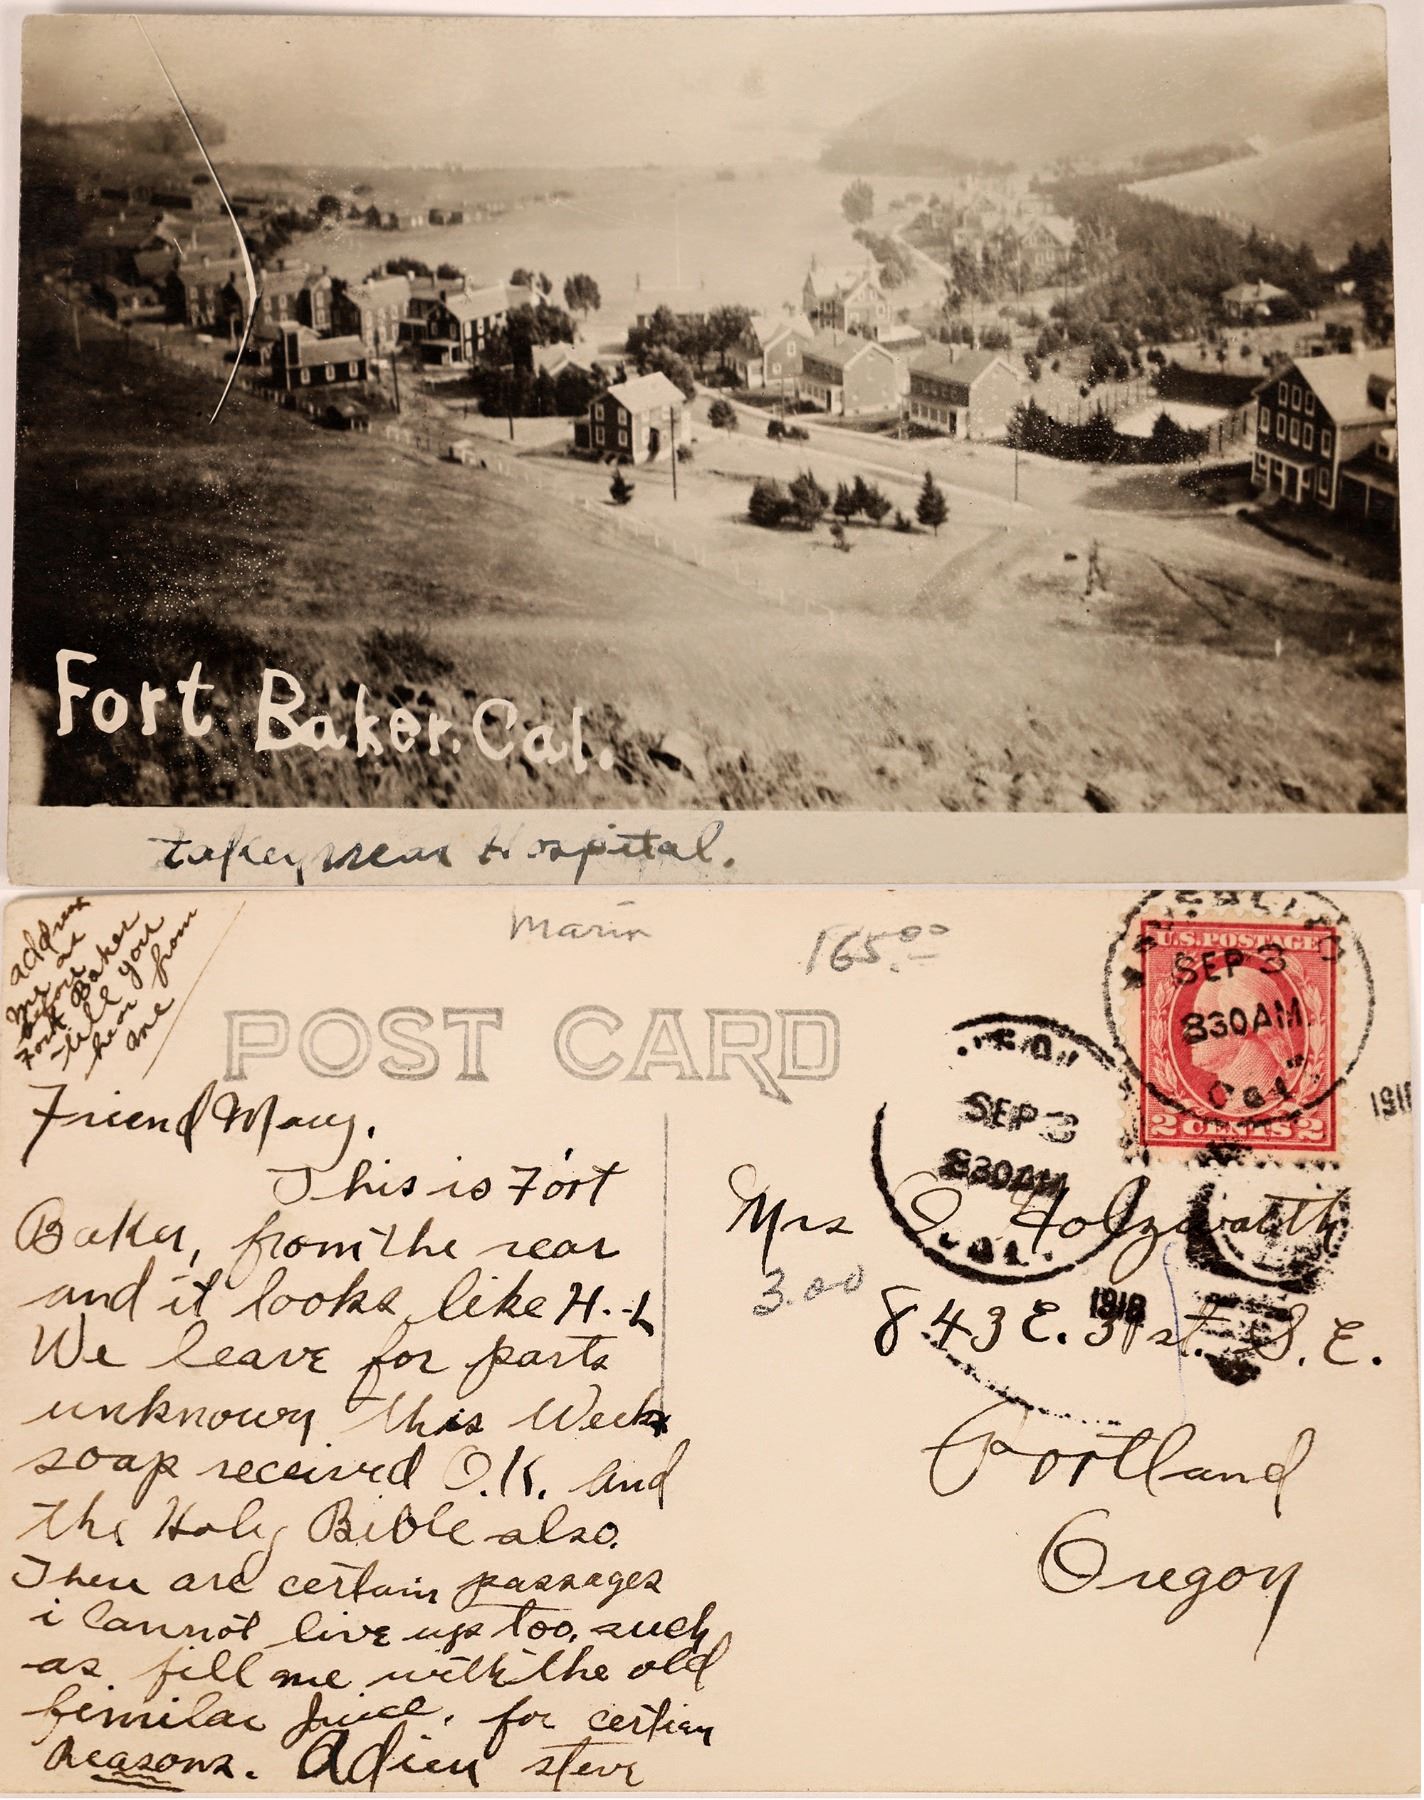 Fort Baker. Cal.
taken near Hospital.
address
me as
before
Fort Baker
till you
hear from
me
Marin
165.00
POST CARD
U.S. POSTAGE
SEP 3
830 AM
Cal
2 CENTS 2
SEP 3
830 AM
CAL.
1918
Friend Mary.
This is Fort
Baker, from the rear
and it looks like H.-L
We leave for parts
unknown this Week
soap received O.K. and
the Holy Bible also.
There are certain passages
i cannot live up too, such
as fill me with the old
fimilar juice, for certian
Reasons. Adieu steve
Mrs O Holzwarth
3.00
843 E. 31st. S.E.
Portland
Oregon